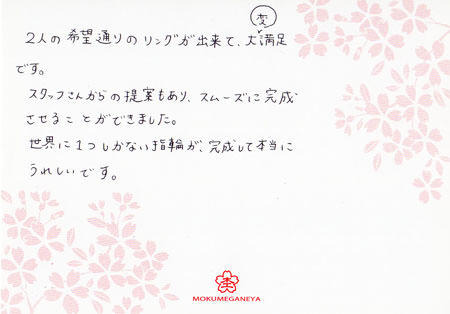 変
2人の希望通りのリングが出来て、大満足
です。
スタッフさんからの提案もあり、スムーズに完成
させることができました。
世界に1つしかない指輪が、完成して本当に
うれしいです。
杢
MOKUMEGANEYA